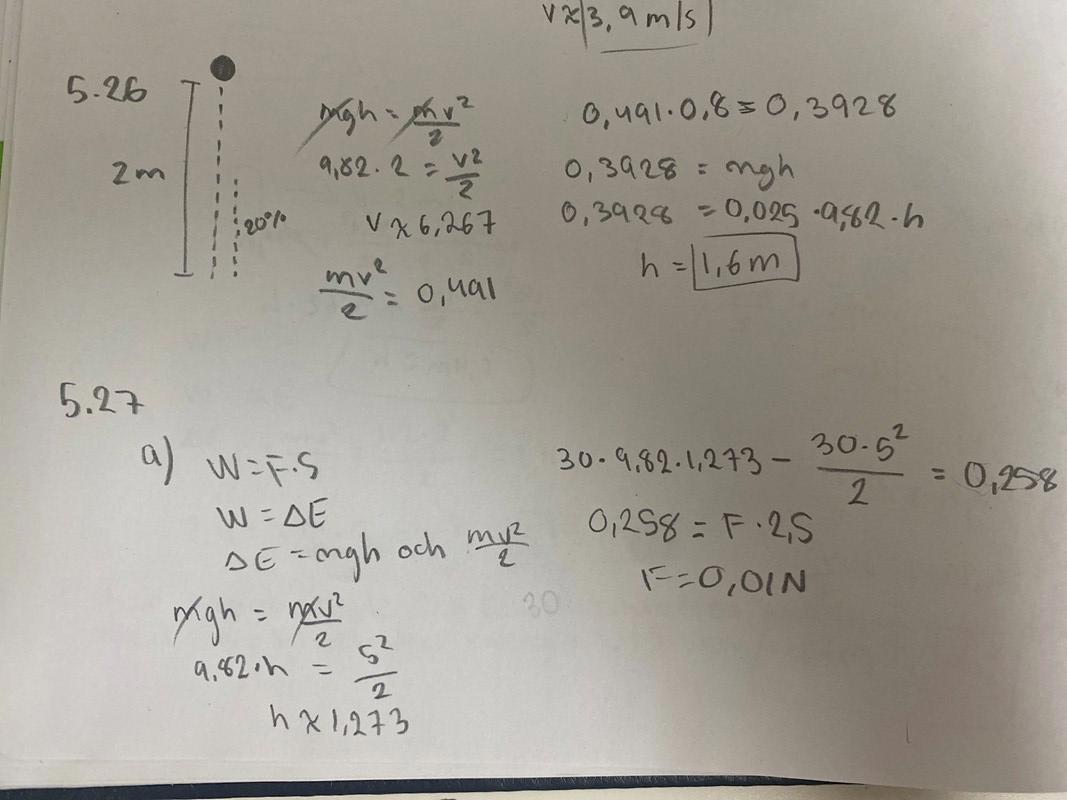 v≈3,9 m/s
5.26
2m
20%
mgh = mv²/2
9,82·2 = v²/2
v≈6,267
mv²/2 = 0,491
0,491·0,8 = 0,3928
0,3928 = mgh
0,3928 = 0,025·9,82·h
h = 1,6m
5.27
a)
W = F·S
W = ΔE
ΔE = mgh och mv²/2
mgh = mv²/2
9,82·h = 5²/2
h ≈ 1,273
30·9,82·1,273 - 30·5²/2 = 0,258
0,258 = F·2,5
F = 0,01N
30